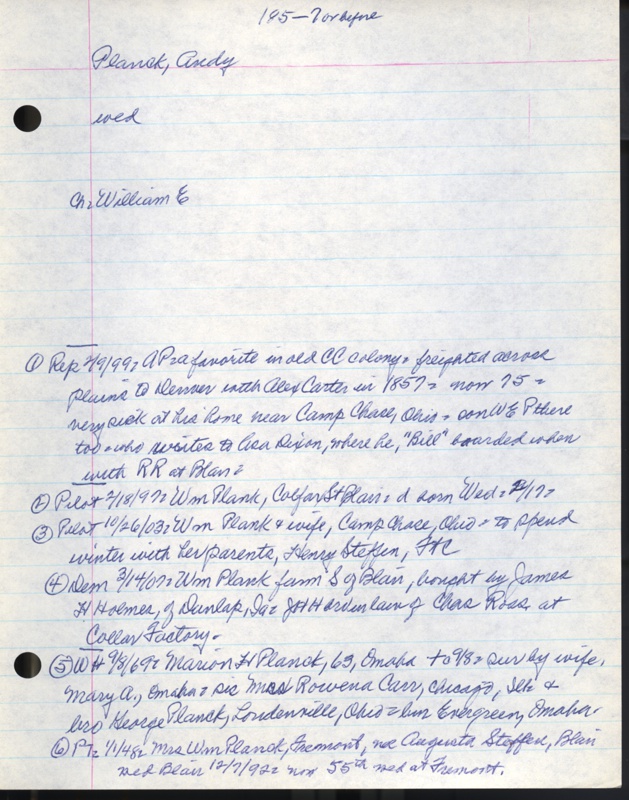 185—7 or before
Planck, Andy
wed
Ch: William E
① Rep 2/9/99: AP = a favorite in old CC colony = freighted across
plains to Denver with Alex Carter in 1857 = now 75 =
very sick at his home near Camp Chase, Ohio = son W E P there
too = who writes to Chas Dixon, where he, "Bill" boarded when
with RR at Blair =
② Pilot 2/18/97: Wm Plank, Colfax St Blair = d born Wed = 2/17 =
③ Pilot 10/26/03: Wm Plank & wife, Camp Chase, Ohio = to spend
winter with her parents, Henry Steffen,
④ Dem 3/14/07: Wm Plank farm S of Blair, bought by James
H Holmes, of Dunlap, Ia = JHH bro in law of Chas Ross at
Collar Factory.
⑤ WH 9/8/69: Marion H Planck, 63, Omaha = sur by wife,
Mary A., Omaha = sis Mrs Rowena Carr, Chicago, Ills &
bro George Planck, Loudenville, Ohio = bur Evergreen, Omaha.
⑥ PT: 1/1/48: Mrs Wm Planck, Fremont, nee Augusta Steffen, Blair
wed Blair 12/7/92 = now 55th wed at Fremont.